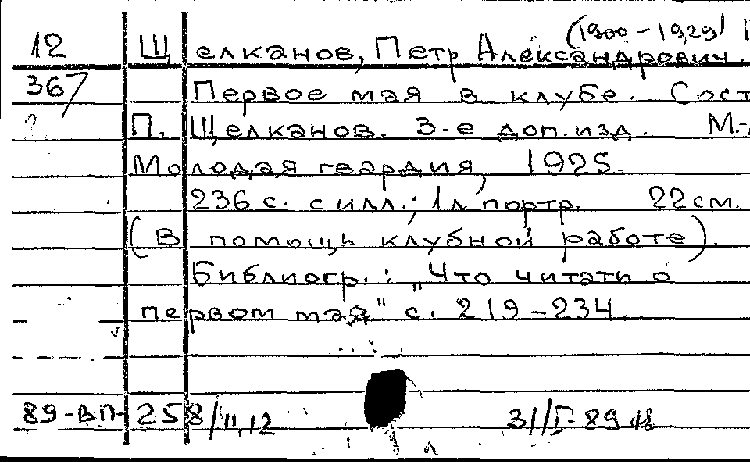 (1900-1929)
12 Щелканов, Петр Александрович.
367 Первое мая в клубе. Сост
? П. Щелканов. 3-е доп. изд. М.-
Молодая гвардия, 1925.
236 с. с илл.; 1л портр. 22 см.
(В помощь клубной работе).
Библиогр.: „Что читать о
первом мая" с. 219-234.
89-ВП-258/11,12 31/I-89